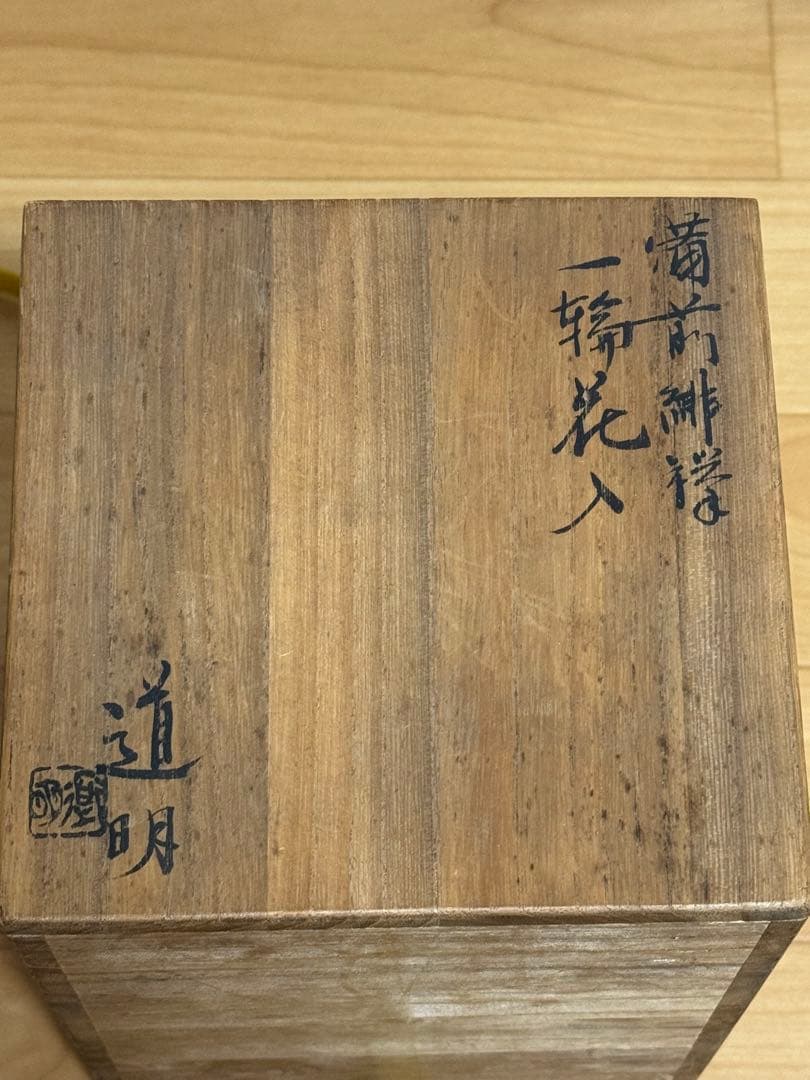 備前緋襷
一輪花入
道明